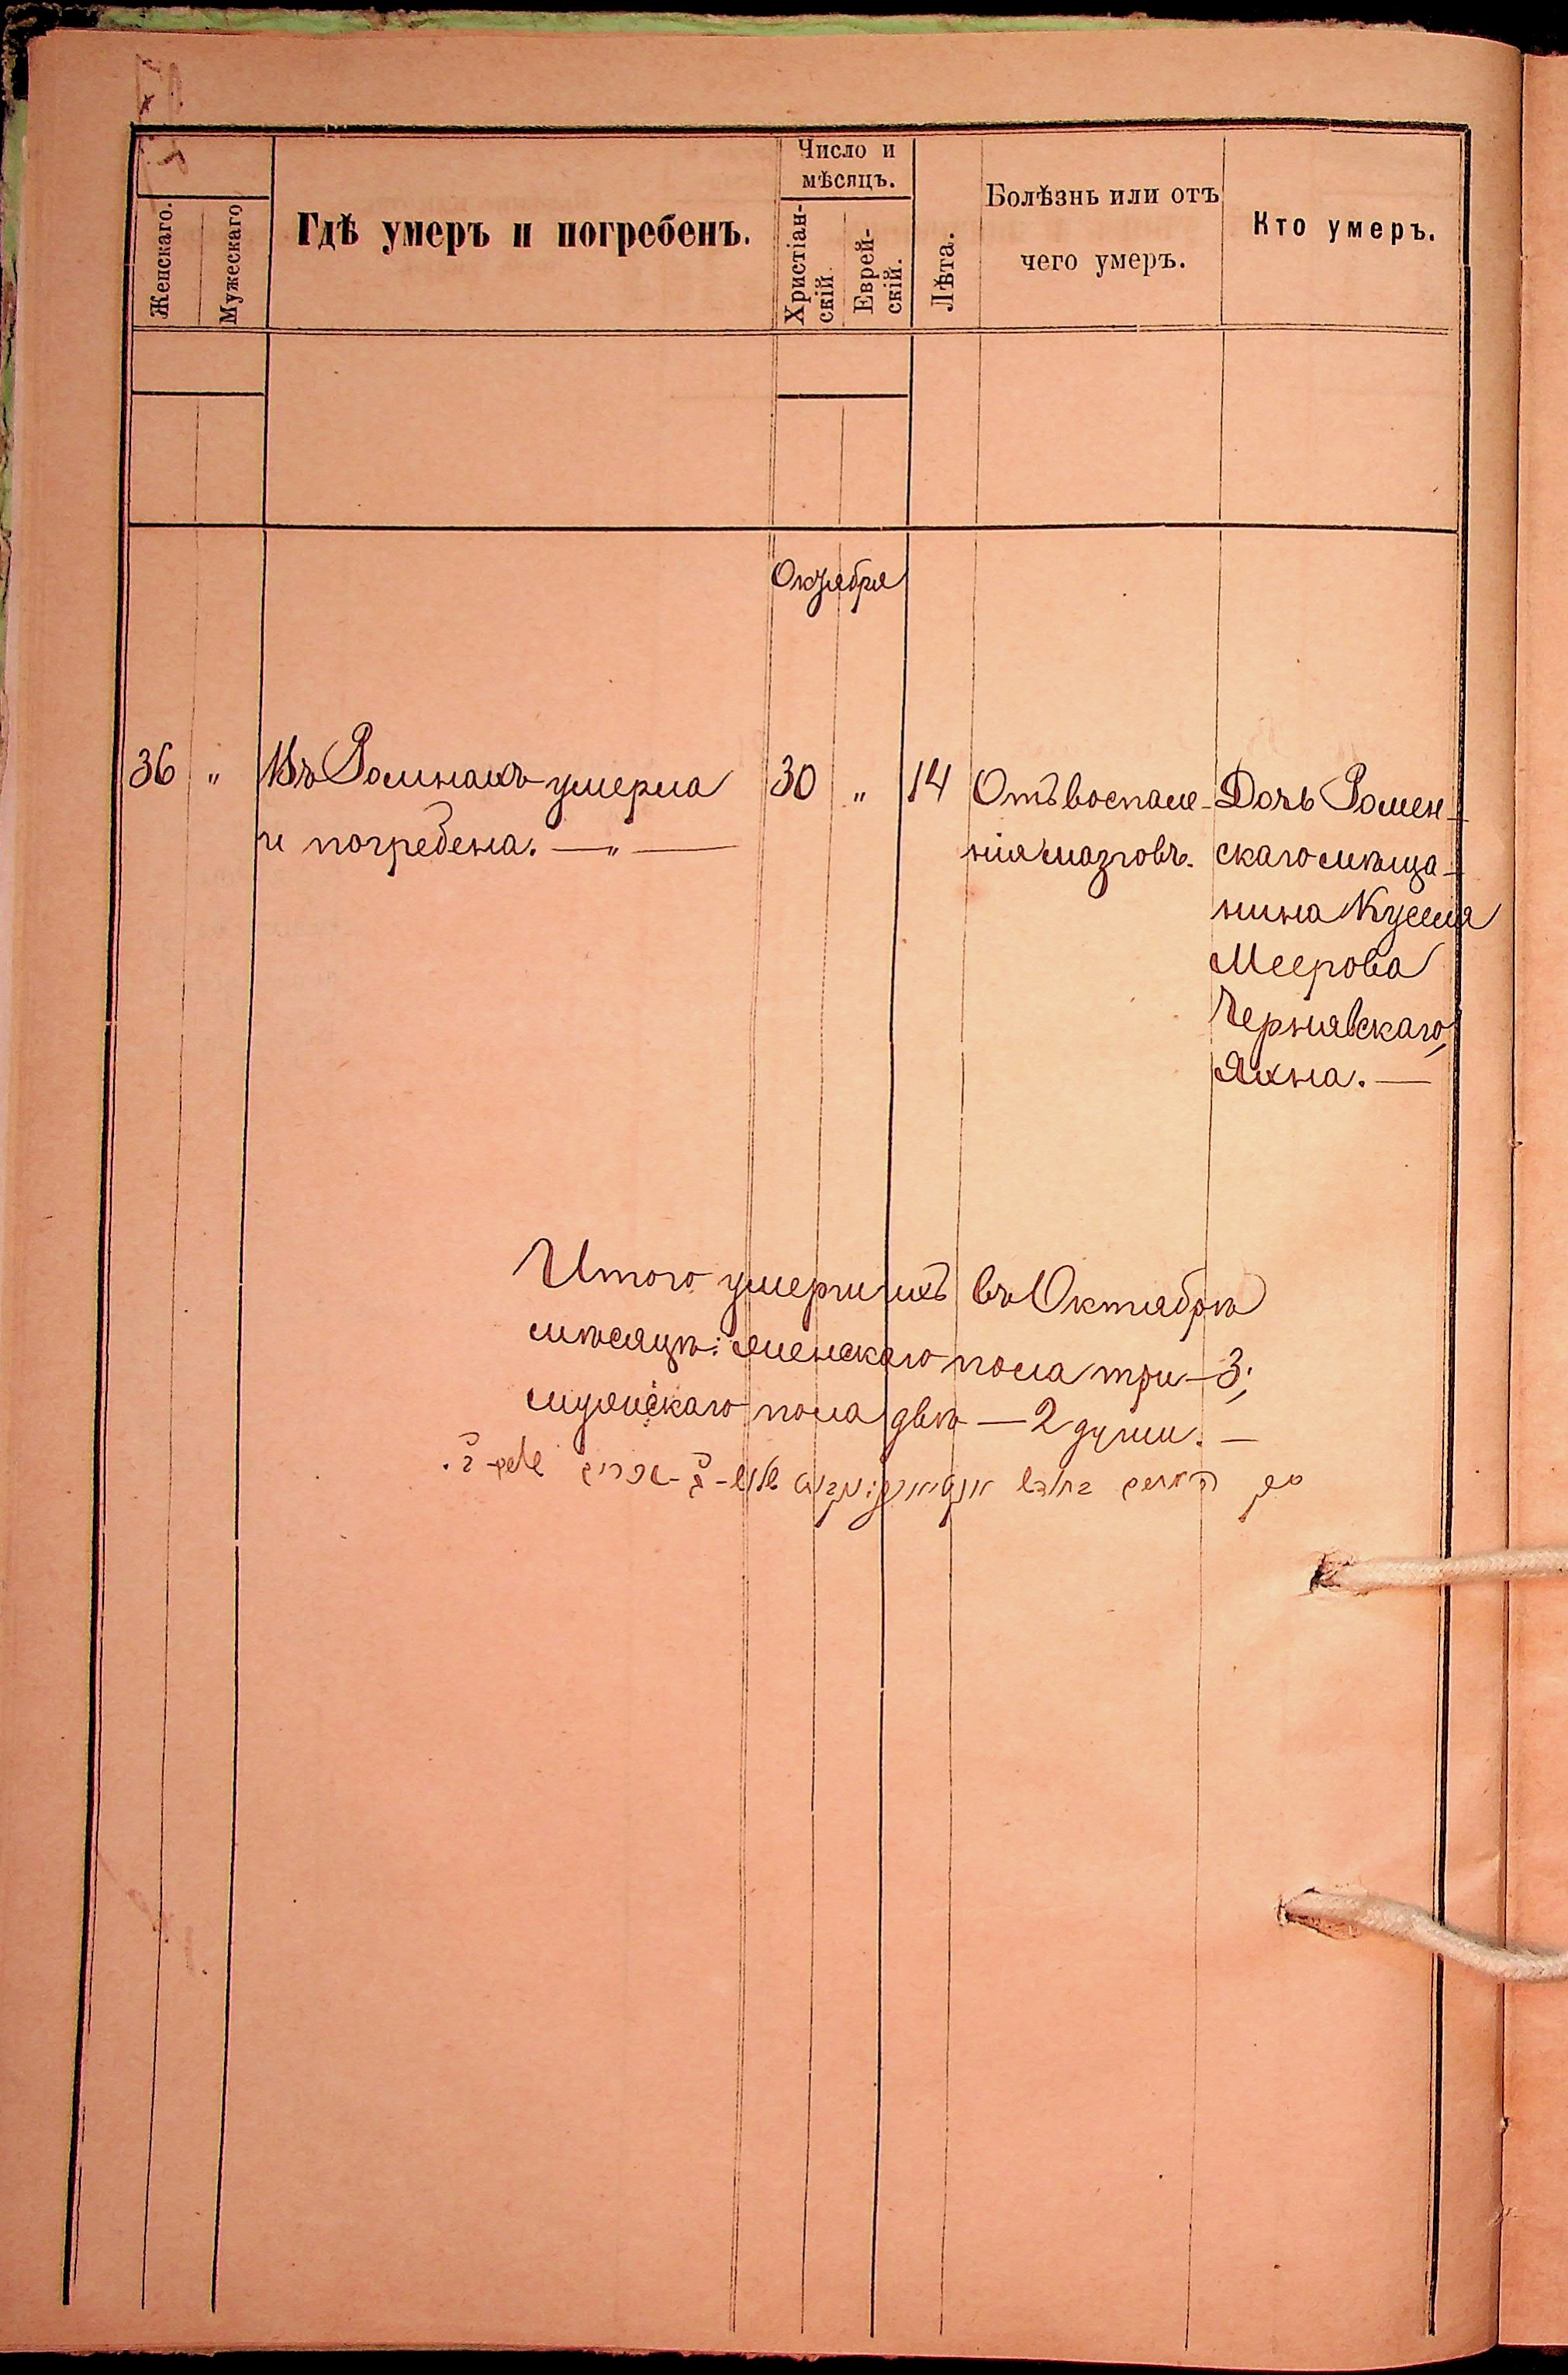 Женскаго.
Мужескаго
Гдѣ умеръ и погребенъ.
Число и
мѣсяцъ.
Христіан-
скій.
Еврей-
скій.
Лѣта.
Болѣзнь или отъ
чего умеръ.
Кто умеръ.
Октября
36 " Въ Ромнахъ умерла 30 " 14 Отъ воспале- Дочь Ромен-
и погребена. — " — нія мозговъ. скаго мѣща-
нина Куселя
Меерова
Чернявскаго,
Яхна. —
Итого умершихъ въ Октябрѣ
мѣсяцѣ: женскаго пола три — 3;
мужескаго пола двѣ — 2 души. —